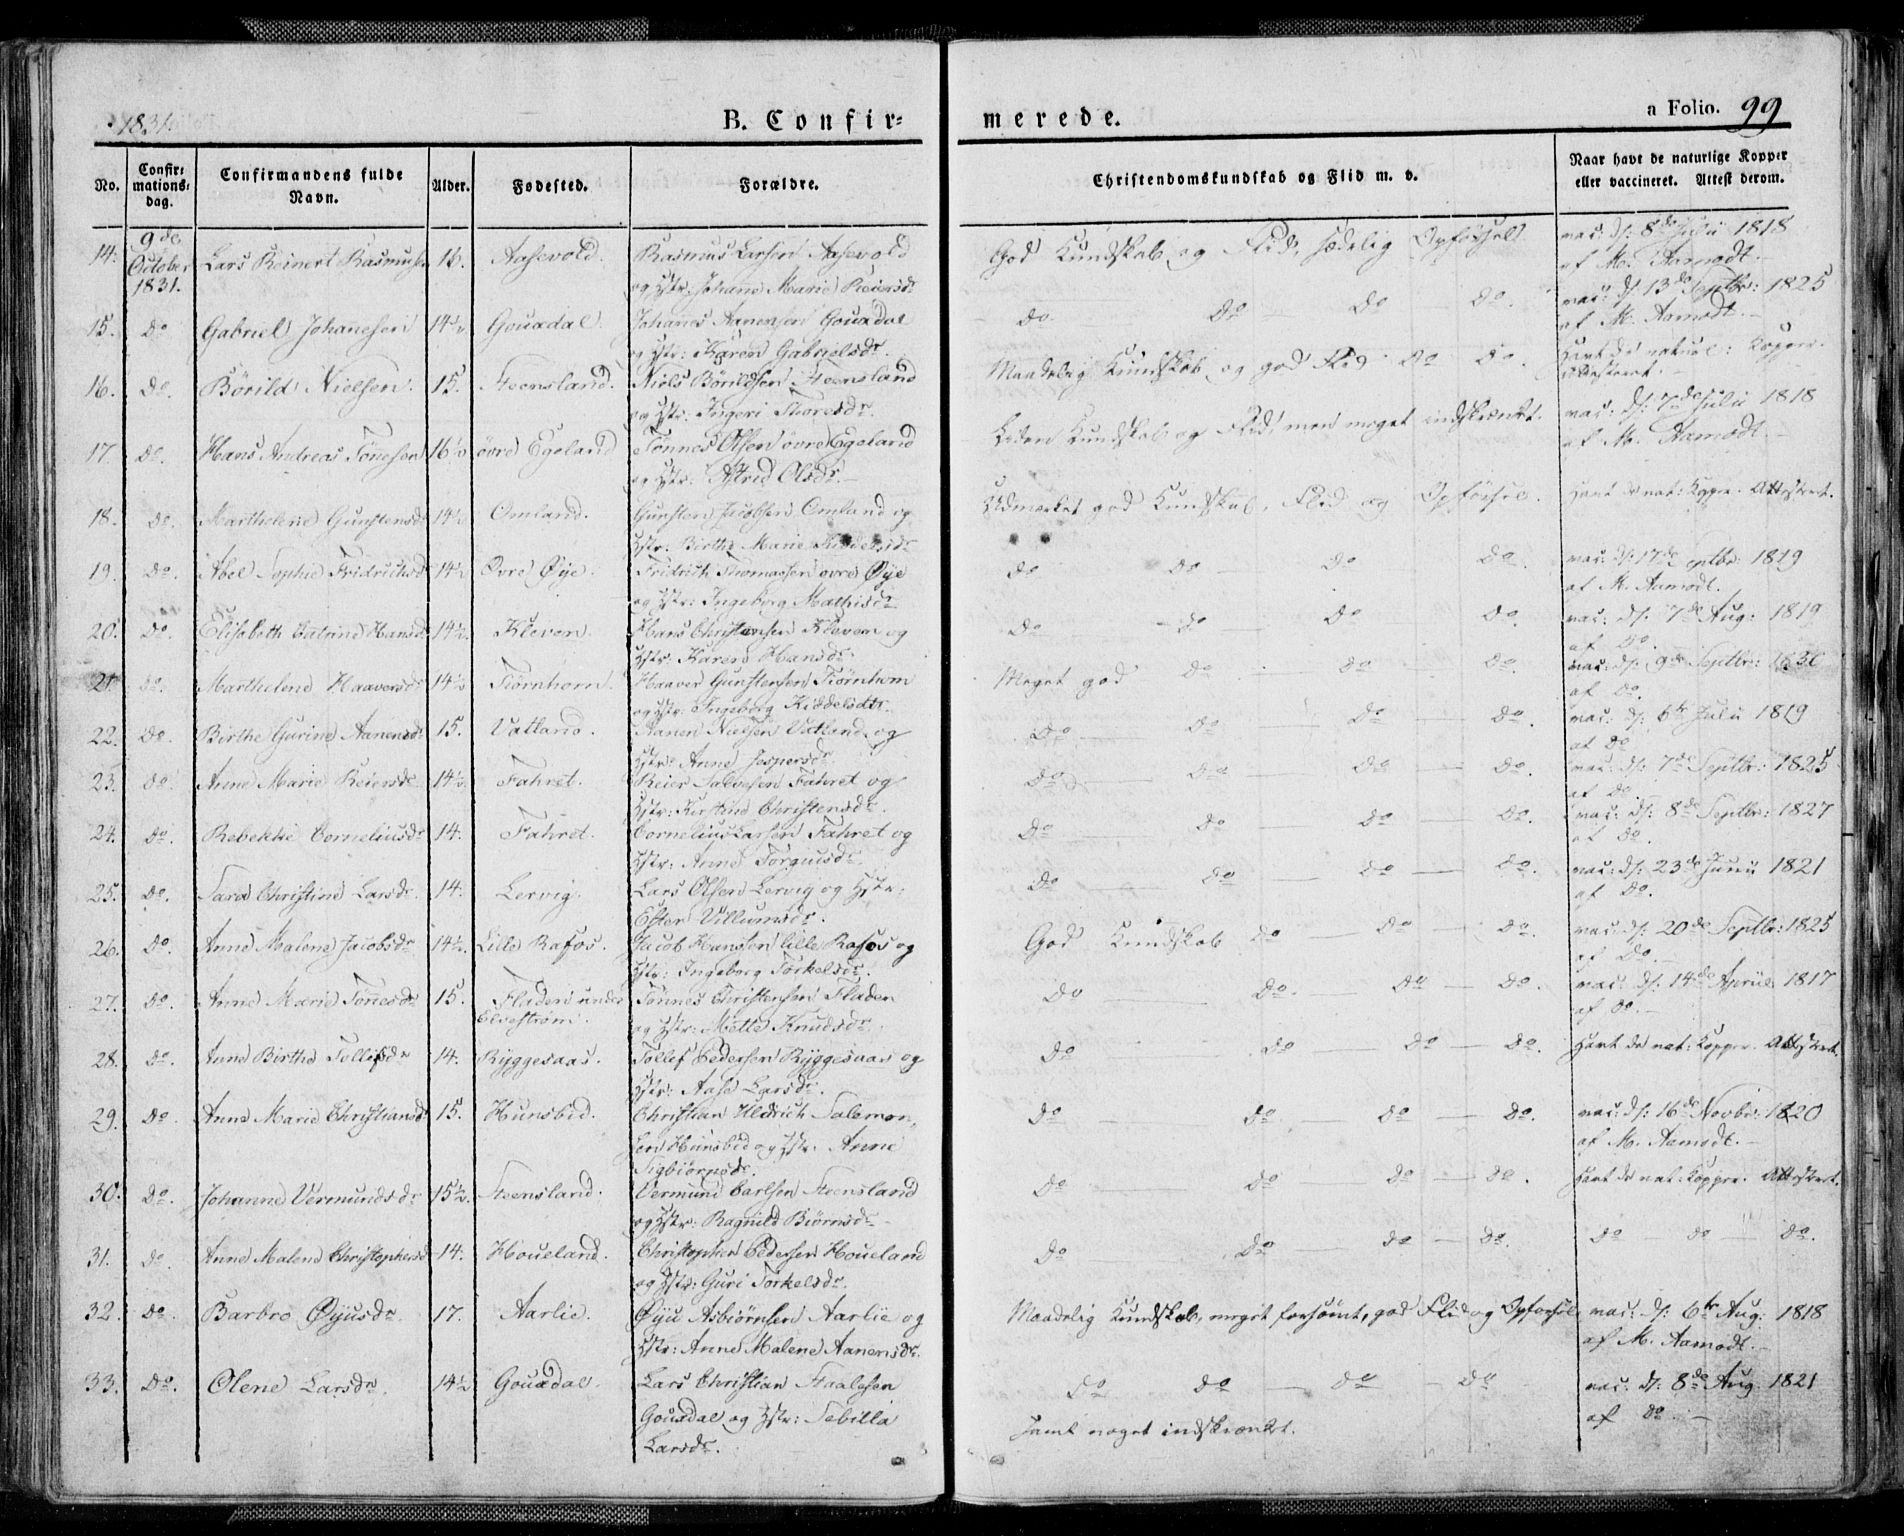 1831.
B. Confir=
merede.
a Folio. 99
No.
Confir=
mations=
dag.
Confirmandens fulde
Navn.
Alder.
Fødested.
Forældre.
Christendomskundskab og Flid m. v.
Naar havt de naturlige Kopper
eller vaccineret. Attest derom.
14. 9de October 1831. Lars Reinert Rasmusen 16. Aasevold. Rasmus Larsen Aasevold
og Hstr: Johane Marie Reiersdr
God Kundskab og Flid, sædelig Opførsel
vac: d: 8de Julii 1818
af M. Aamodt.
15. Do Gabriel Johanesen 14½ Gouadal. Johanes Aanensen Gouadal
og Hstr: Karen Gabrielsdr.
Do Do Do Do.
vac: d: 13de Septbr: 1825
af M. Aamodt.
16. Do. Börild Nielsen. 15. Steensland. Niels Börildsen Steensland
og Hstr: Ingeri Toresdr.
Maadelig Kundskab og god Flid Do Do.
Havt de naturl: Kopper.
Attesteret.
17. Do. Hans Andreas Tönesen 16½ övre Egeland Tönnes Olsen övre Egeland
og Hstr: Astrid Olsdr.
Liden Kundskab og Flid, men meget indskrænket.
vac: d: 7de Julii 1818
af M. Aamodt.
18. Do. Marthelene Gunstensdr 14½ Omland. Gunsten Jacobsen Omland og
Hstr: Birthe Marie Kiddelsdr
Udmerket god Kundskab, Flid og Opförsel.
Havt de nat: Kopper. Attesteret.
19. Do. Abel Sophie Fridrichsdr 14½ Övre Øye. Fridrich Thomassen övre Øye
og Hstr: Ingeborg Mathisdr
Do Do Do Do.
vac: d: 17de Septbr: 1819
af M. Aamodt.
20. Do. Elisabeth Catrine Hansdr 14½. Kleven. Hans Christensen Kleven og
Hstr: Karen Hansdr.
Do Do Do Do.
vac: d: 7de Aug: 1819
af Do.
21. Do. Marthelene Haaversdr 14½ Tiörnhom. Haaver Gunstensen Tiörnhom
og Hstr: Ingeborg Kiddelsdtr.
Meget god Do Do Do.
vac: d: 9de Septbr: 1830
af Do.
22. Do. Birthe Gurine Aanensdr 15. Vatland. Aanen Nielsen Vatland og
Hstr: Anne Jespersdr
Do Do Do Do.
vac: d: 6te Julii 1819
af Do
23. Do. Anne Marie Reiersdr 14½. Fahret. Reier Salvesen Fahret og
Hstr: Kirstine Christensdr.
Do Do Do Do.
vac: d: 7de Septbr: 1825
af Do
24. Do. Rebekke Corneliusdr 14. Fahret. Cornelius Larsen Fahret og
Hstr: Anne Torgiusdr.
Do Do Do Do.
vac: d: 8de Septbr: 1827
af Do.
25. Do. Sara Christine Larsdr. 14. Lervig. Lars Olsen Lervig og Hstr:
Ester Villumsdr.
Do Do Do Do.
vac: d: 23de Junii 1821
af Do.
26. Do. Anne Malene Jacobsdr 14½. Lille Rafos. Jacob Hansen lille Rafos og
Hstr: Ingeborg Torkelsdr.
God Kundskab Do Do Do.
vac: d: 20de Septbr: 1825
af Do.
27. Do. Anne Marie Tönesdr 15. Fladen under Elvestrøm. Tönnes Christensen Fladen
og Hstr: Mette Knudsdr.
Do Do. Do Do.
vac: d: 14de Apriil 1817
af Do.
28. Do. Anne Birthe Tollifsdr 14. Ryggesaas. Tollef Pedersen Ryggesaas og
Hstr: Aase Larsdr.
Do Do Do Do.
Havt de nat: Kopper. Attesteret.
29. Do. Anne Marie Christiansdr 15. Hunsbed. Christian Uldrich Salomon,
sen Hunsbed og Hstr: Anne
Sigbiörnsdr.
Do Do. Do Do.
vac: d: 16de Novbr: 1820
af M. Aamodt.
30. Do. Johanne Vermundsdr 15½. Steensland. Vermund Carlsen Steensland
og Hstr: Ragnild Biörnsdr
Do Do Do Do.
Havt de nat: Kopper. Attesteret.
31. Do. Anne Malene Christophersdr 14. Houeland. Christopher Pedersen Houeland
og Hstr: Guri Torkelsdr.
Do Do Do Do.
Do Do Do.
32. Do. Barbro Øyusdr. 17. Aarlie. Øyu Asbiörnsen Aarlie og
Hstr: Anne Malene Aanensdr.
Maadelig Kundskab, meget forsömt, god Flid og Opförsel.
vac: d: 6te Aug: 1818
af M. Aamodt.
33. Do. Olene Larsdr. 14½ Gouadal. Lars Christian Staalesen
Gouadal og Hstr: Sebilla
Larsdr.
Do Do Do Do
samt noget indskrænket.
vac: d: 8de Aug 1821
af Do